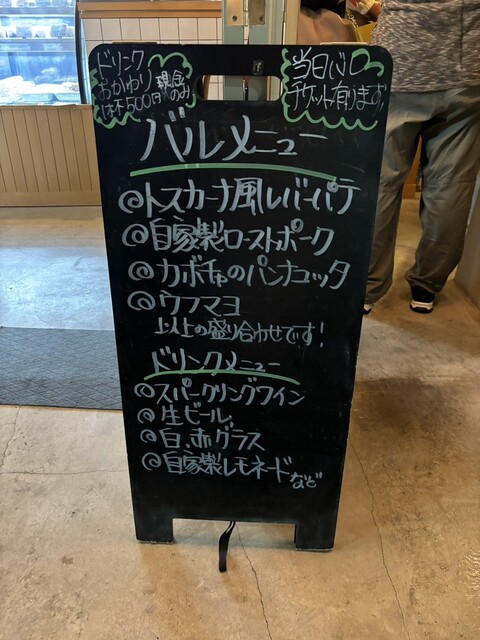 ドリンク
おかわり 現金
1杯500円 のみ
当日バル
チケット有ります!
バルメニュー
◎トスカーナ風レバーパテ
◎自家製ローストポーク
◎カボチャのパンナコッタ
◎ウフマヨ
以上の盛り合わせです!
ドリンクメニュー
◎スパークリングワイン
◎生ビール
◎白、赤グラス
◎自家製レモネード
など